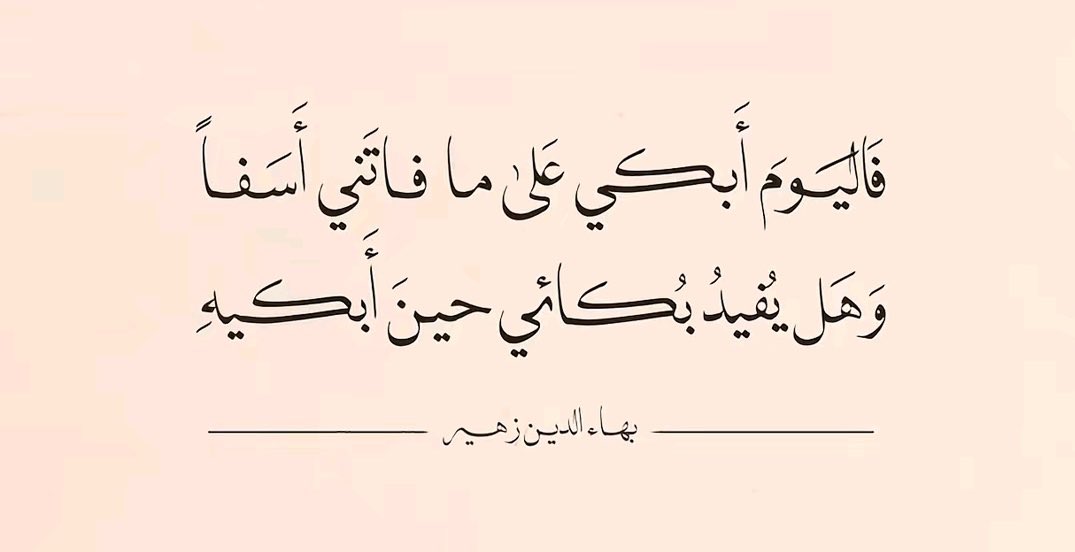 فَاليَومَ أَبكي عَلى ما فاتَني أَسَفاً
وَهَل يُفيدُ بُكائي حينَ أَبكيهِ
بهاء الدين زهير